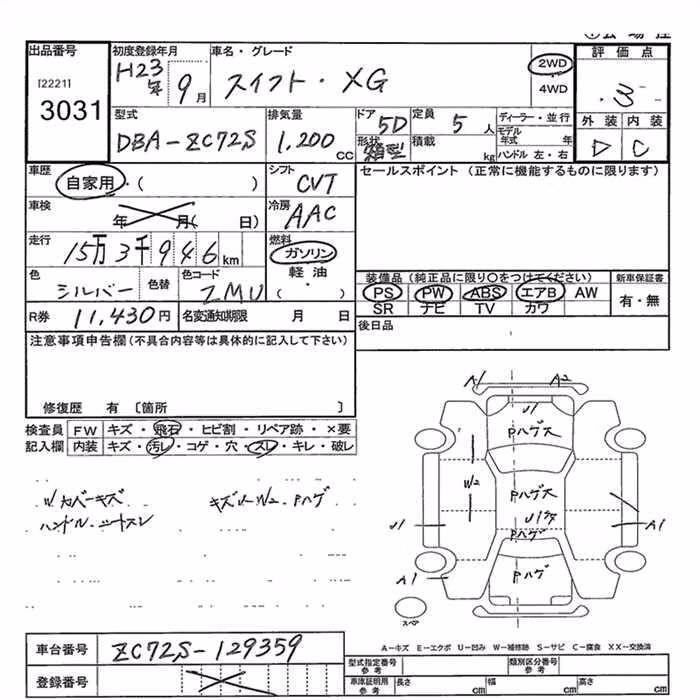 出品番号 初度登録年月 車名・グレード 2WD 評価点
[2221] H23年 9月 スイフト・XG 4WD 3
3031 外装 内装
型式 排気量 ドア 5D 定員 5人 ディーラー・並行 D C
DBA-ZC72S 1,200CC 形状 箱型 積載 kg モデル年式 年
ハンドル 左・右
車歴 自家用・( ) シフト CVT セールスポイント (正常に機能するものに限ります)
車検 年 月( 日) 冷房 AAC
走行 15万3千946km 燃料 ガソリン
軽油・( )
色 シルバー 色替 色コード ZMU 装備品(純正品に限り○をつけてください) 新車保証書
PS PW ABS エアB AW 有・無
SR ナビ TV カワ
R券 11,430円 名変通知期限 月 日 後日品
注意事項申告欄(不具合内容等は具体的に記入して下さい)
修復歴 有 〔箇所 〕
検査員 FW キズ・飛石・ヒビ割・リペア跡・×要
記入欄 内装 キズ・汚レ・コゲ・穴・スレ・キレ・破レ
W カバーキズ キズU-W2-Pハゲ
ハンドル・シートスレ
A1 A2
U1
Pハゲ大
W2 Pハゲ大
U1 A1
Pハゲ
A1 Pハゲ
スペア
A-キズ E-エクボ U-凹み W-補修跡 S-サビ C-腐食 XX-交換済
車台番号 ZC72S-129359
登録番号
型式指定番号 参考 類別区分番号 参考
車庫証明用 参考 長さ cm 幅 cm 高さ cm